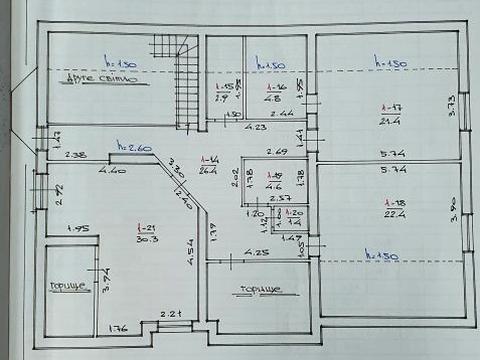 h=1.50
h=1.50
h=1.50
Друге світло
1-15
2.9
1.95
1-16
4.8
1.95
1-17
21.4
3.73
1.50
2.44
4.23
1.47
h=2.60
2.38
4.40
3.30
2.40
1-14
26.4
2.69
1.41
5.74
5.74
2.02
1.78
1-19
4.6
1.78
2.57
1-18
22.4
3.90
2.92
1.95
1-21
30.3
1.20
1.12
1.00
1-20
1.4
1.47
1.05
1.79
4.54
4.25
h=1.50
горище
3.94
горище
1.76
2.21